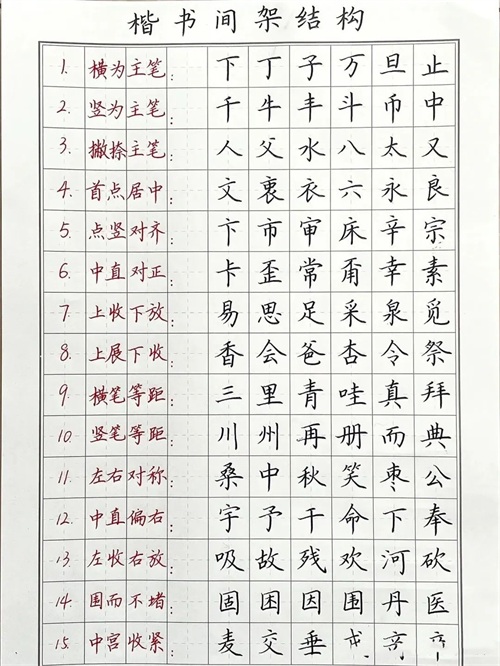 楷书间架结构
1. 横为主笔: 下丁子万旦止
2. 竖为主笔: 千牛丰斗币中
3. 撇捺主笔: 人父水八太又
4. 首点居中: 文衷衣六永良
5. 点竖对齐: 卞市审床辛宗
6. 中直对正: 卡歪常甭幸素
7. 上收下放: 易思足采泉觅
8. 上展下收: 香会爸杏令祭
9. 横笔等距: 三里青哇真拜
10. 竖笔等距: 川州再册而典
11. 左右对称: 桑中秋笑枣公
12. 中直偏右: 宇予干命下奉
13. 左收右放: 吸故残欢河砍
14. 围而不堵: 固困因围丹医
15. 中宫收紧: 麦交垂